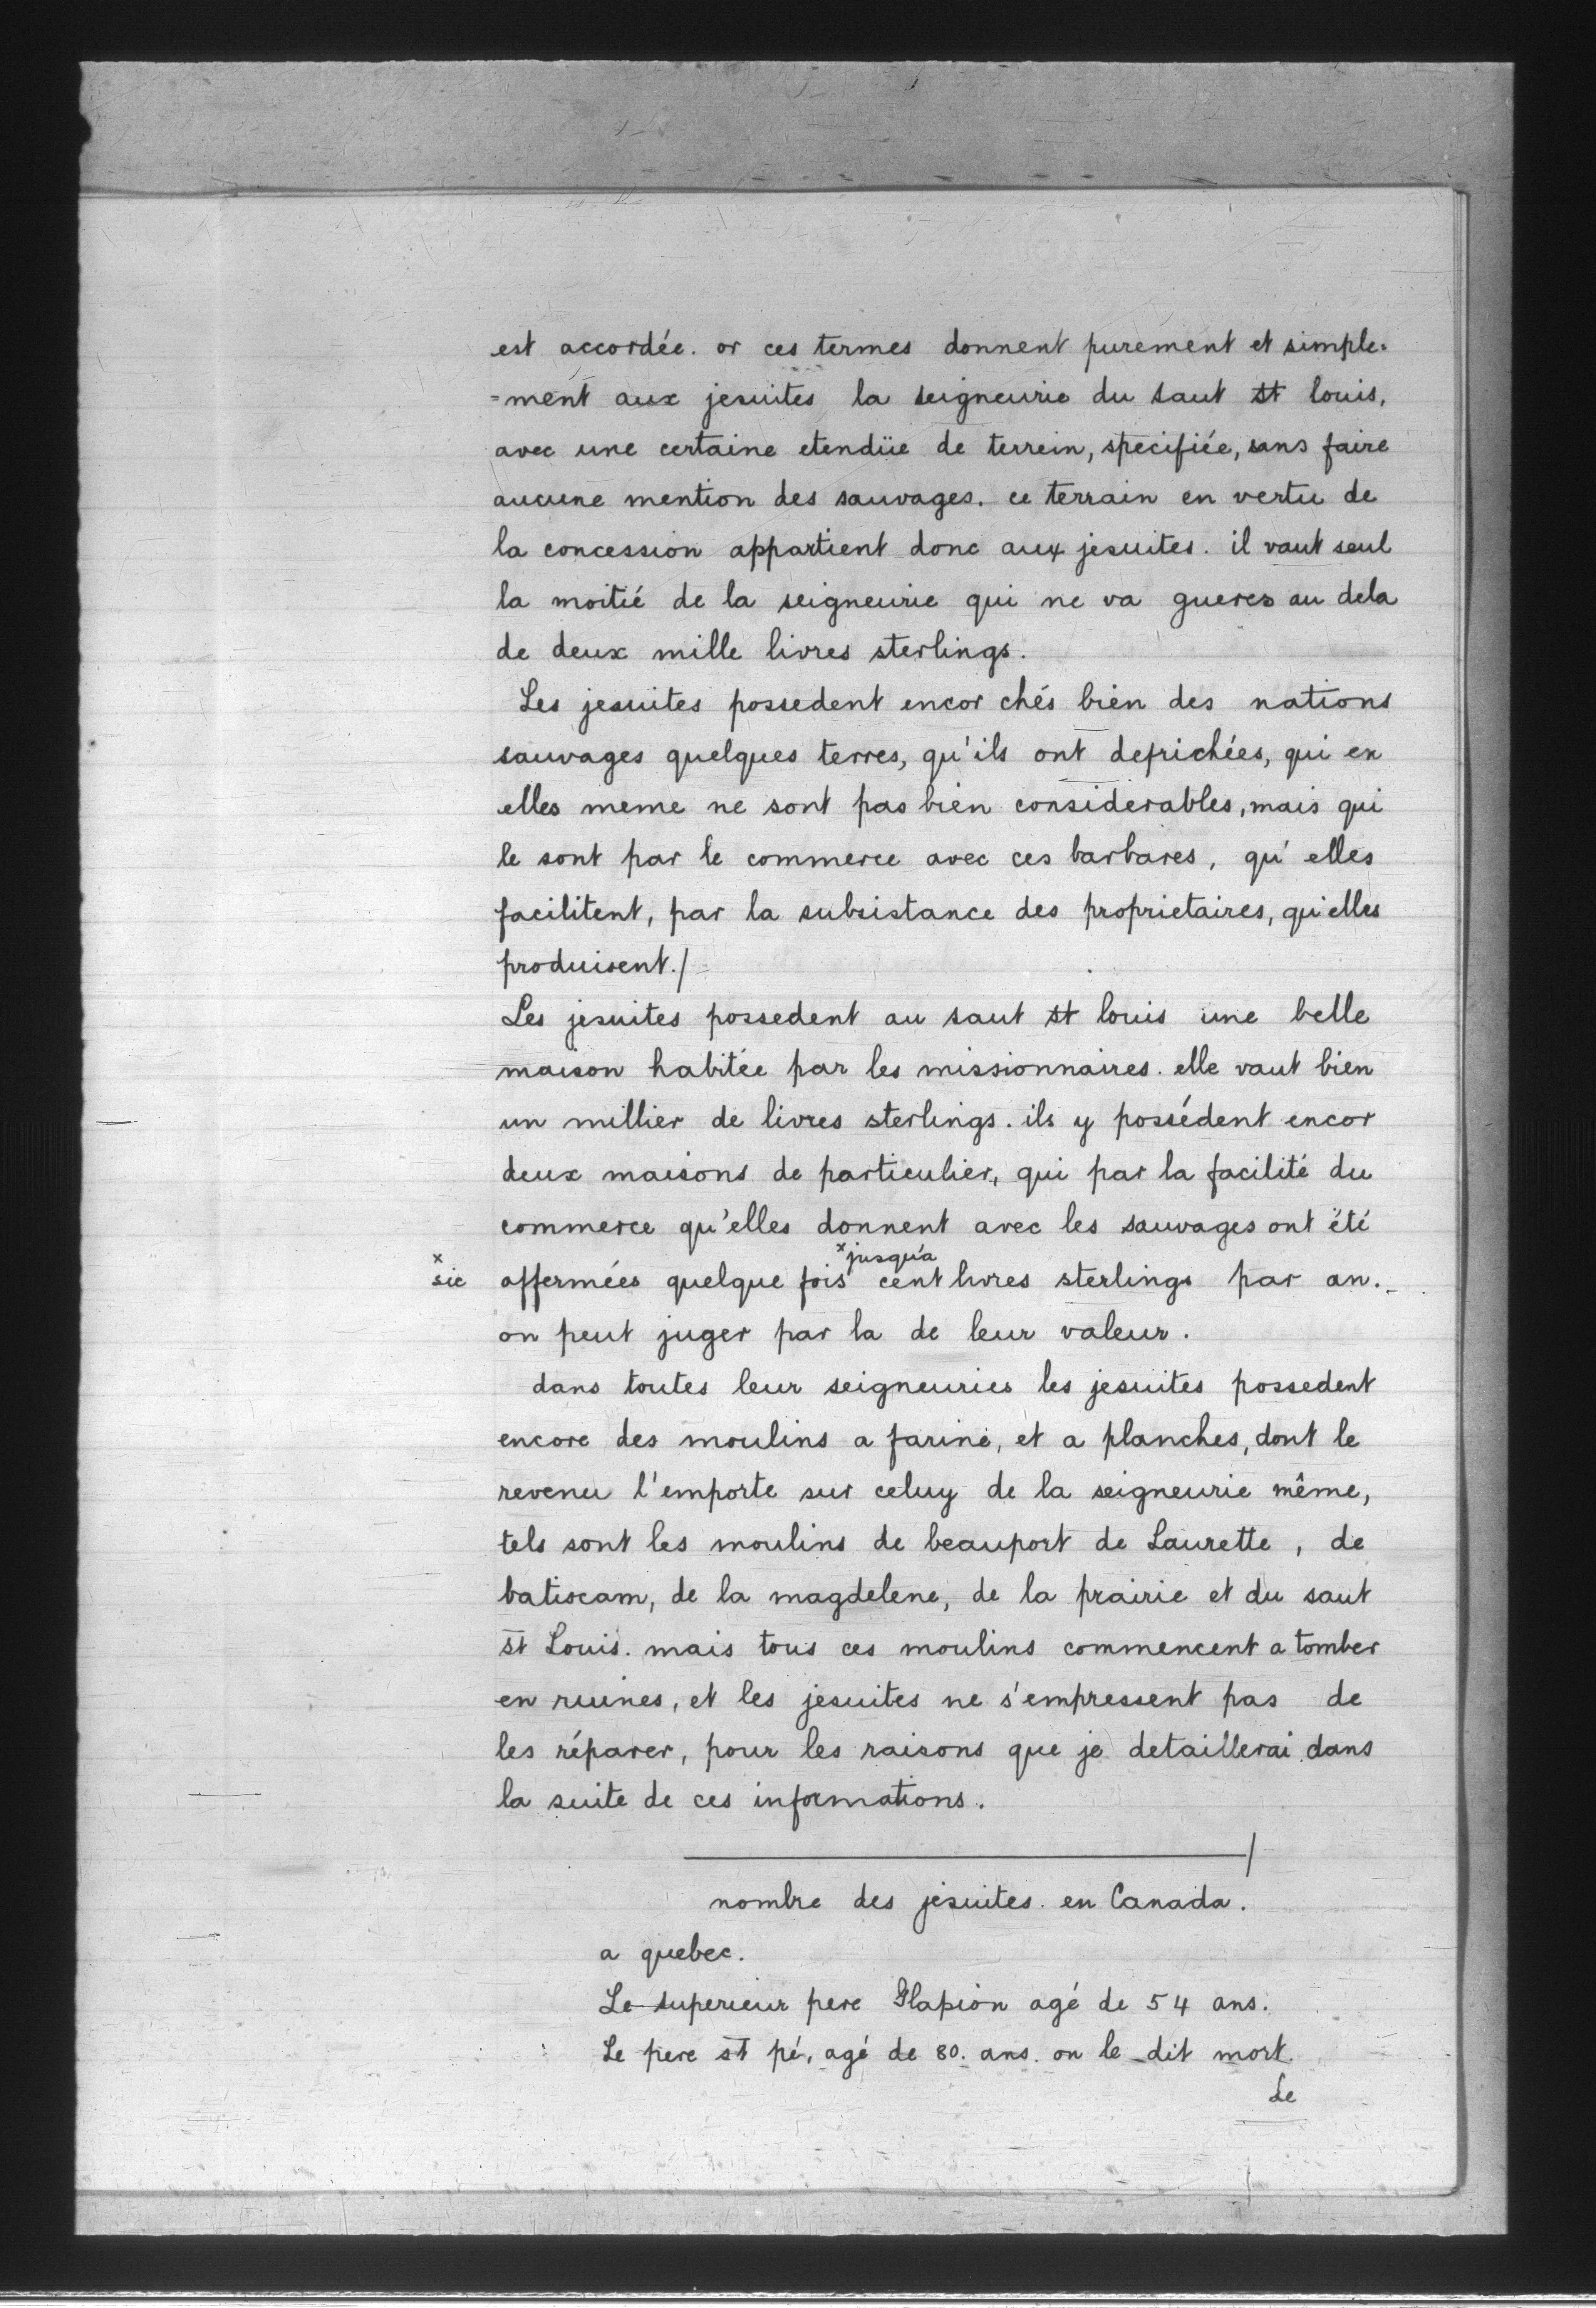 est accordée. or ces termes donnent purement et simple-
=ment aux jesuites la seigneurie du saut st louis,
avec une certaine etendüe de terrein, specifiée, sans faire
aucune mention des sauvages. ce terrain en vertu de
la concession appartient donc aux jesuites. il vaut seul
la moitié de la seigneurie qui ne va gueres au dela
de deux mille livres sterlings.
Les jesuites possedent encor chés bien des nations
sauvages quelques terres, qu'ils ont defrichées, qui en
elles meme ne sont pas bien considerables, mais qui
le sont par le commerce avec ces barbares, qu'elles
facilitent, par la subsistance des proprietaires, qu'elles
produisent./
Les jesuites possedent au saut st louis une belle
maison habitée par les missionnaires. elle vaut bien
un millier de livres sterlings. ils y possédent encor
deux maisons de particulier, qui par la facilité du
commerce qu'elles donnent avec les sauvages ont été
x x jusqu'a
sic affermées quelque fois cent livres sterlings par an.
on peut juger par la de leur valeur.
dans toutes leur seigneuries les jesuites possedent
encore des moulins a farine, et a planches, dont le
revenu l'emporte sur celuy de la seigneurie même,
tels sont les moulins de beauport de Laurette, de
batiscam, de la magdelene, de la prairie et du saut
st Louis. mais tous ces moulins commencent a tomber
en ruines, et les jesuites ne s'empressent pas de
les réparer, pour les raisons que je detaillerai dans
la suite de ces informations.
nombre des jesuites en Canada.
a quebec.
Le superieur pere Glapion agé de 54 ans.
Le pere st pé, agé de 80. ans. on le dit mort.
Le